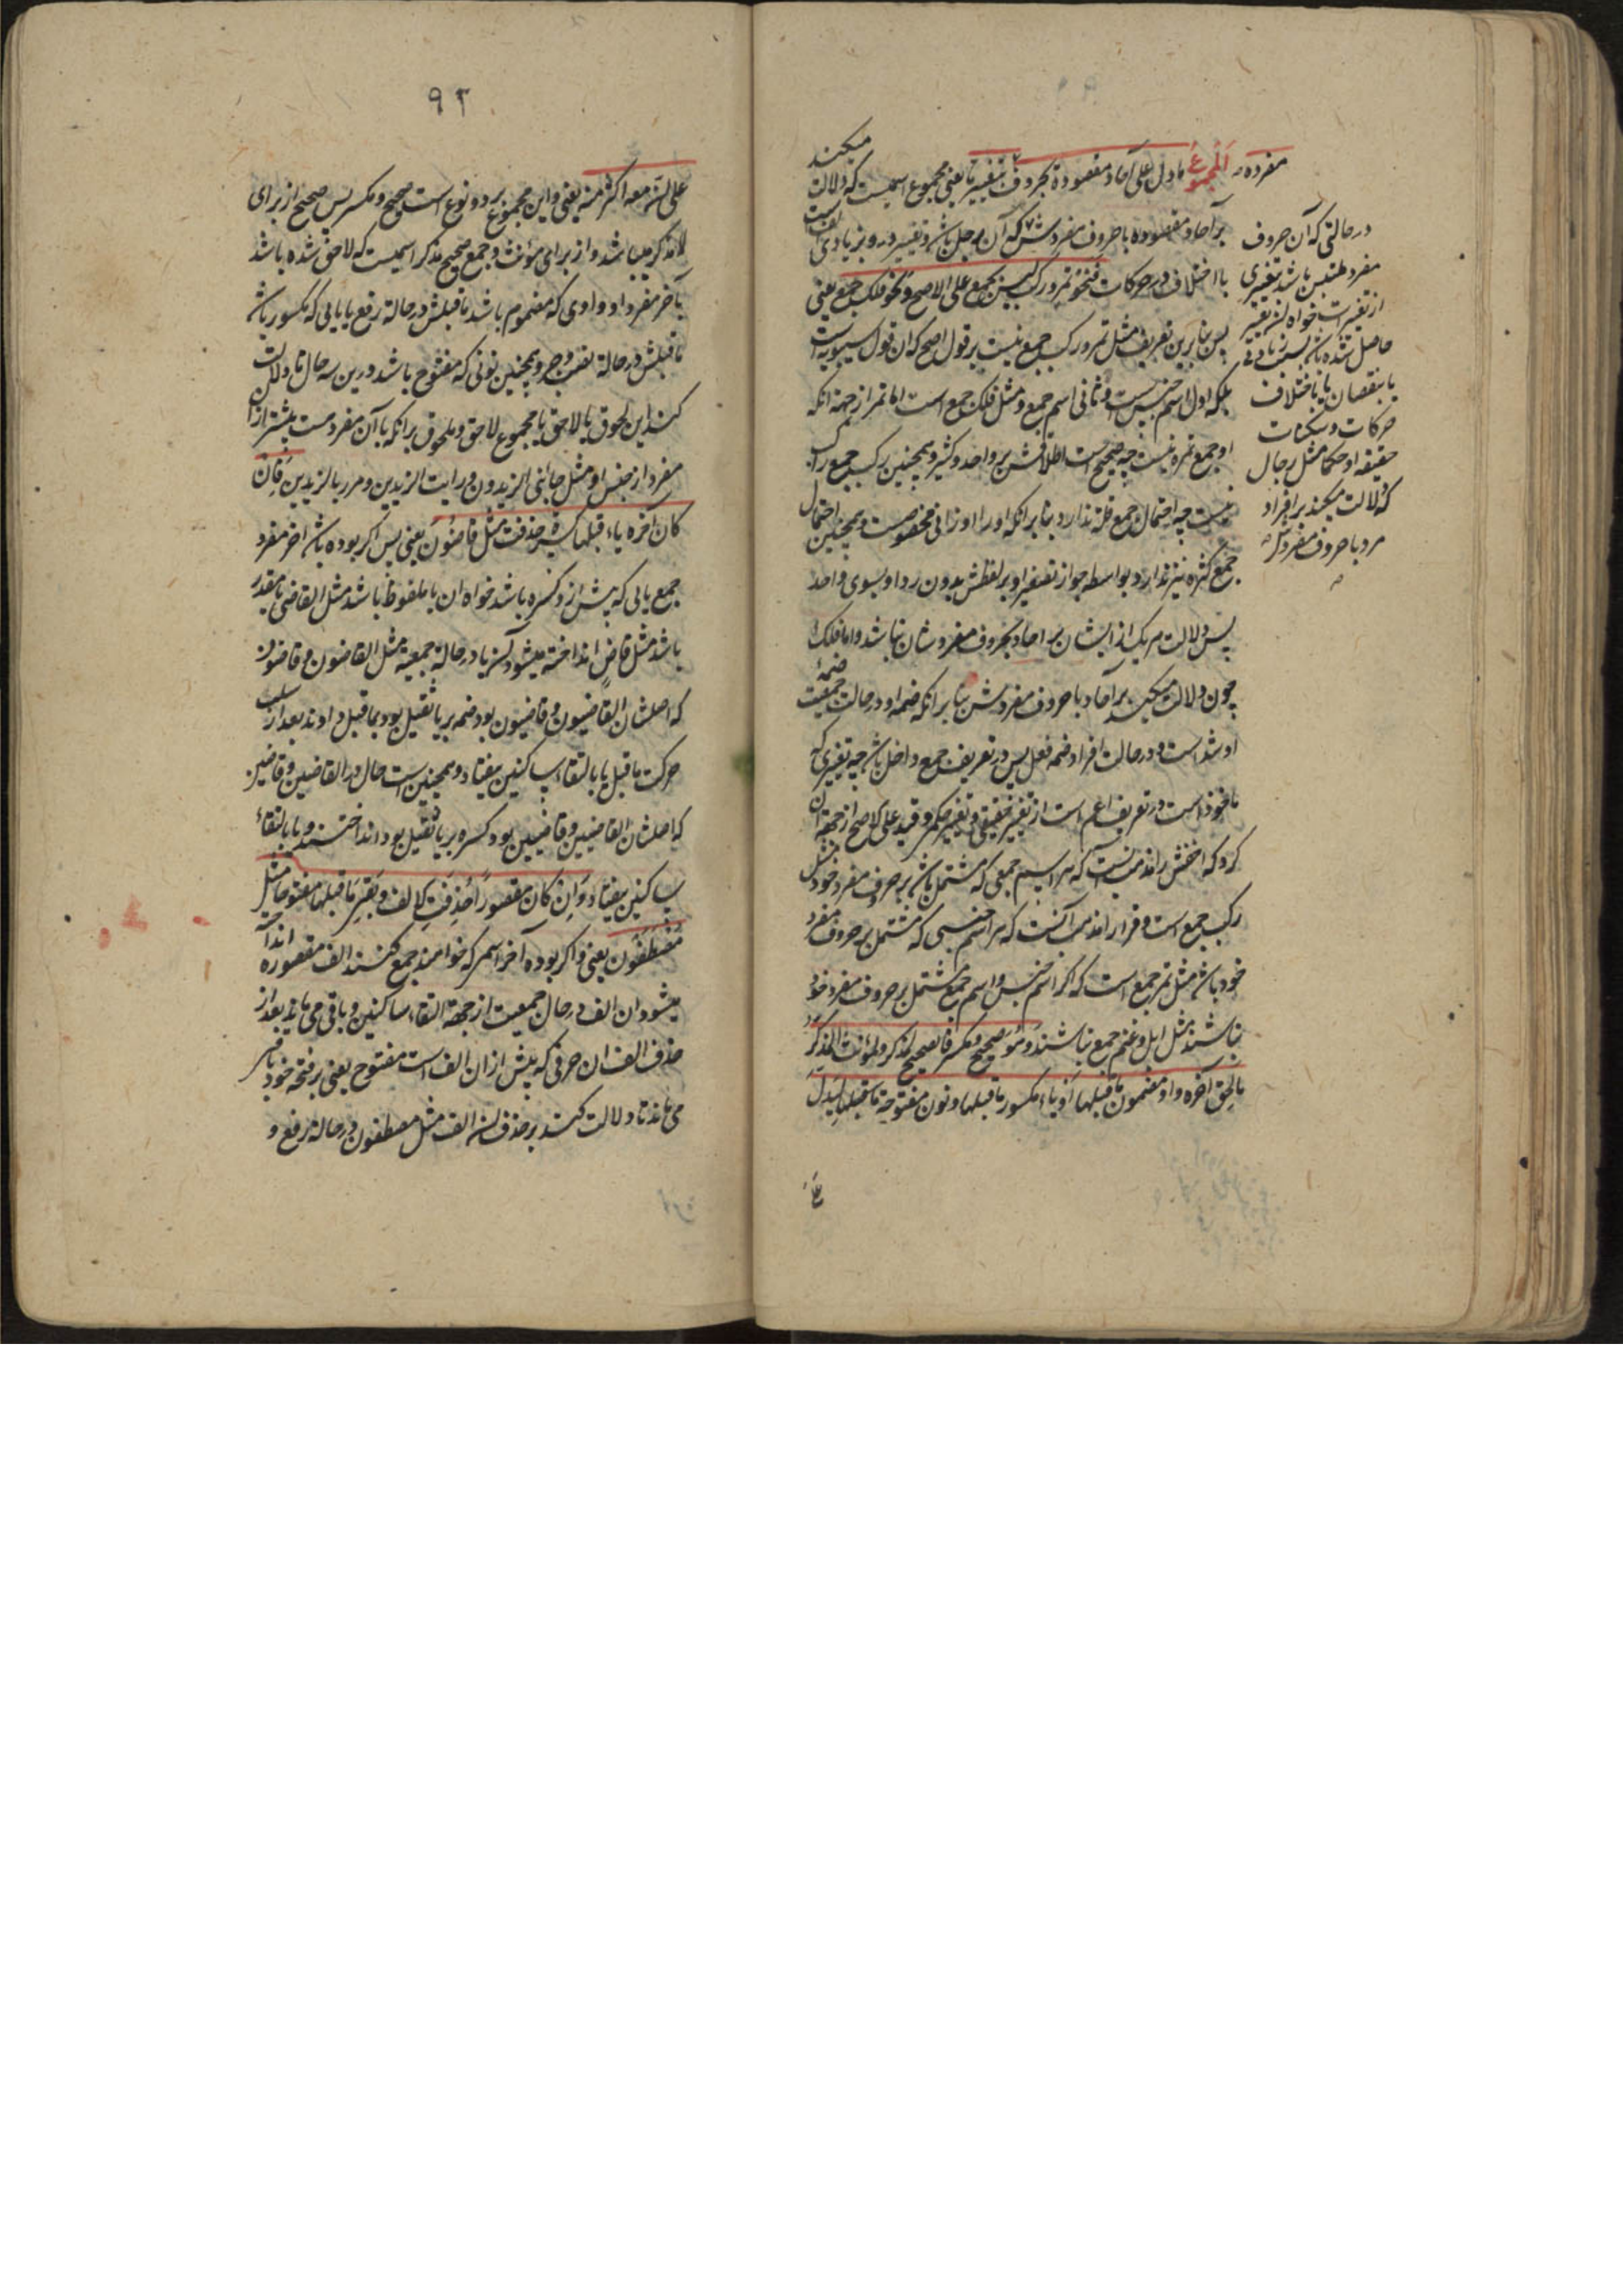 مفرده
المجموع مادل على آحاد مقصودة بحروف بتغییر ما یعنی مجموع اسمیست که دلالت میکند
بر آحاد مقصوده با حروف مفردش که آن رجل باشد و تغییر درو بزیادی الفست
با اختلاف در حرکات فنحو تمر و رکب لیس بجمع علی الاصح و نحو فلک جمع یعنی
پس بنابرین تعریف مثل تمر و رکب جمع نیست بر قول اصح که ان قول سیبویه است
بلکه اول اسم جنس است و ثانی اسم جمع و مثل فلک جمع است اما تمر از جهة انکه
او جمع تمره نیست چه صحیح است اطلاقش بر واحد و کثیر و همچنین رکب جمع راکب
نیست چه احتمال جمع قلة ندارد بنا بر انکه او را اوزانی مخصوصست و همچنین احتمال
جمع کثره نیز ندارد بواسطه جواز تصغیر او بر لفظش بدون رد او بسوی واحد
پس دلالت هر یک از ایشان بر احاد بحروف مفردشان نباشد و اما فلک
چون دلالت میکند بر آحاد با حروف مفردش بنا بر انکه ضمه او در حالت جمعیت ضمه
او شد است و در حالت افراد ضمه قفل پس در تعریف جمع داخل باشد چه تغییری که
ماخوذ است در تعریف اعم است از تغییر حقیقی و تغییر حکمی و قید علی الاصح از جهة ان
کرد که اخفش را مذهب انست که هر اسم جمعی که مشتمل باشد بر حروف مفرد خود مثل
رکب جمع است و فرا را مذهب آنست که هر اسم جنسی که مشتمل بر حروف مفرد
خود باشد مثل تمر جمع است که اگر اسم جنس و اسم جمع مشتمل بر حروف مفرد خود
نباشند مثل ابل و غنم جمع نباشند و هو صحیح و مکسر فالصحیح لمذکر و لمؤنث المذکر
ما لحق آخره واو مضموم ما قبلها او یاء مکسور ما قبلها و نون مفتوحة لیدل
در حالتی که آن حروف
مفرد ملتبس باشد بتغییری
از تغییرات خواه ان تغییر
حاصل شده باشد بسبب زیادتی
یا بنقصان یا باختلاف
حرکات و سکنات
حقیقة او حکما مثل رجال
که دلالت میکند بر افراد
مرد با حروف مفردش
۹۲
علی ان معه اکثر منه یعنی و این مجموع بر دو نوع است صحیح و مکسر پس صحیح از برای
مذکر میباشد و از برای مؤنث و جمع صحیح مذکر اسمیست که لاحق شده باشد
بآخر مفرد او واوی که مضموم باشد ما قبلش در حالة رفع یا یایی که مکسور باشد
ما قبلش در حالة نصب و جر و همچنین نونی که مفتوح باشد درین سه حال تا دلالت
کند این لحوق یا لاحق یا مجموع لاحق و ملحوق بر انکه با آن مفردست بیشتر از ان
مفرد از جنس او مثل جائنی الزیدون و رایت الزیدین و مررت بالزیدین فان
کان آخره یاء قبلها کسرة حذفت مثل قاضون یعنی پس اکر بوده باشد اخر مفرد
جمع یایی که پیش ازو کسره باشد خواه ان یا ملفوظ باشد مثل القاضی یا مقدر
باشد مثل قاض انداخته میشود ان یا در حالة جمعیة مثل القاضون و قاضون
که اصلشان القاضیون و قاضیون بود ضمه بر یا ثقیل بود بما قبل دادند بعد از سلب
حرکت ما قبل یا بالتقاء ساکنین بیفتاد و همچنین است حال در القاضین و قاضین
که اصلشان القاضیین و قاضیین بود کسره بر یا ثقیل بود انداختند و یا بالتقاء
ساکنین بیفتاد و ان کان مقصورا حذفت الالف و بقی ما قبلها مفتوحا مثل
مصطفون یعنی و اکر بوده آخر اسم که خواهند جمع کنند الف مقصوره انداخته
میشود ان الف در حال جمعیت از جهة التقاء ساکنین و باقی می ماند بعد از
حذف الف ان حرفی که پیش از ان الف است مفتوح یعنی بر فتحه خود باقی
می ماند تا دلالت کند بر حذف ان الف مثل مصطفون در حالة رفع و